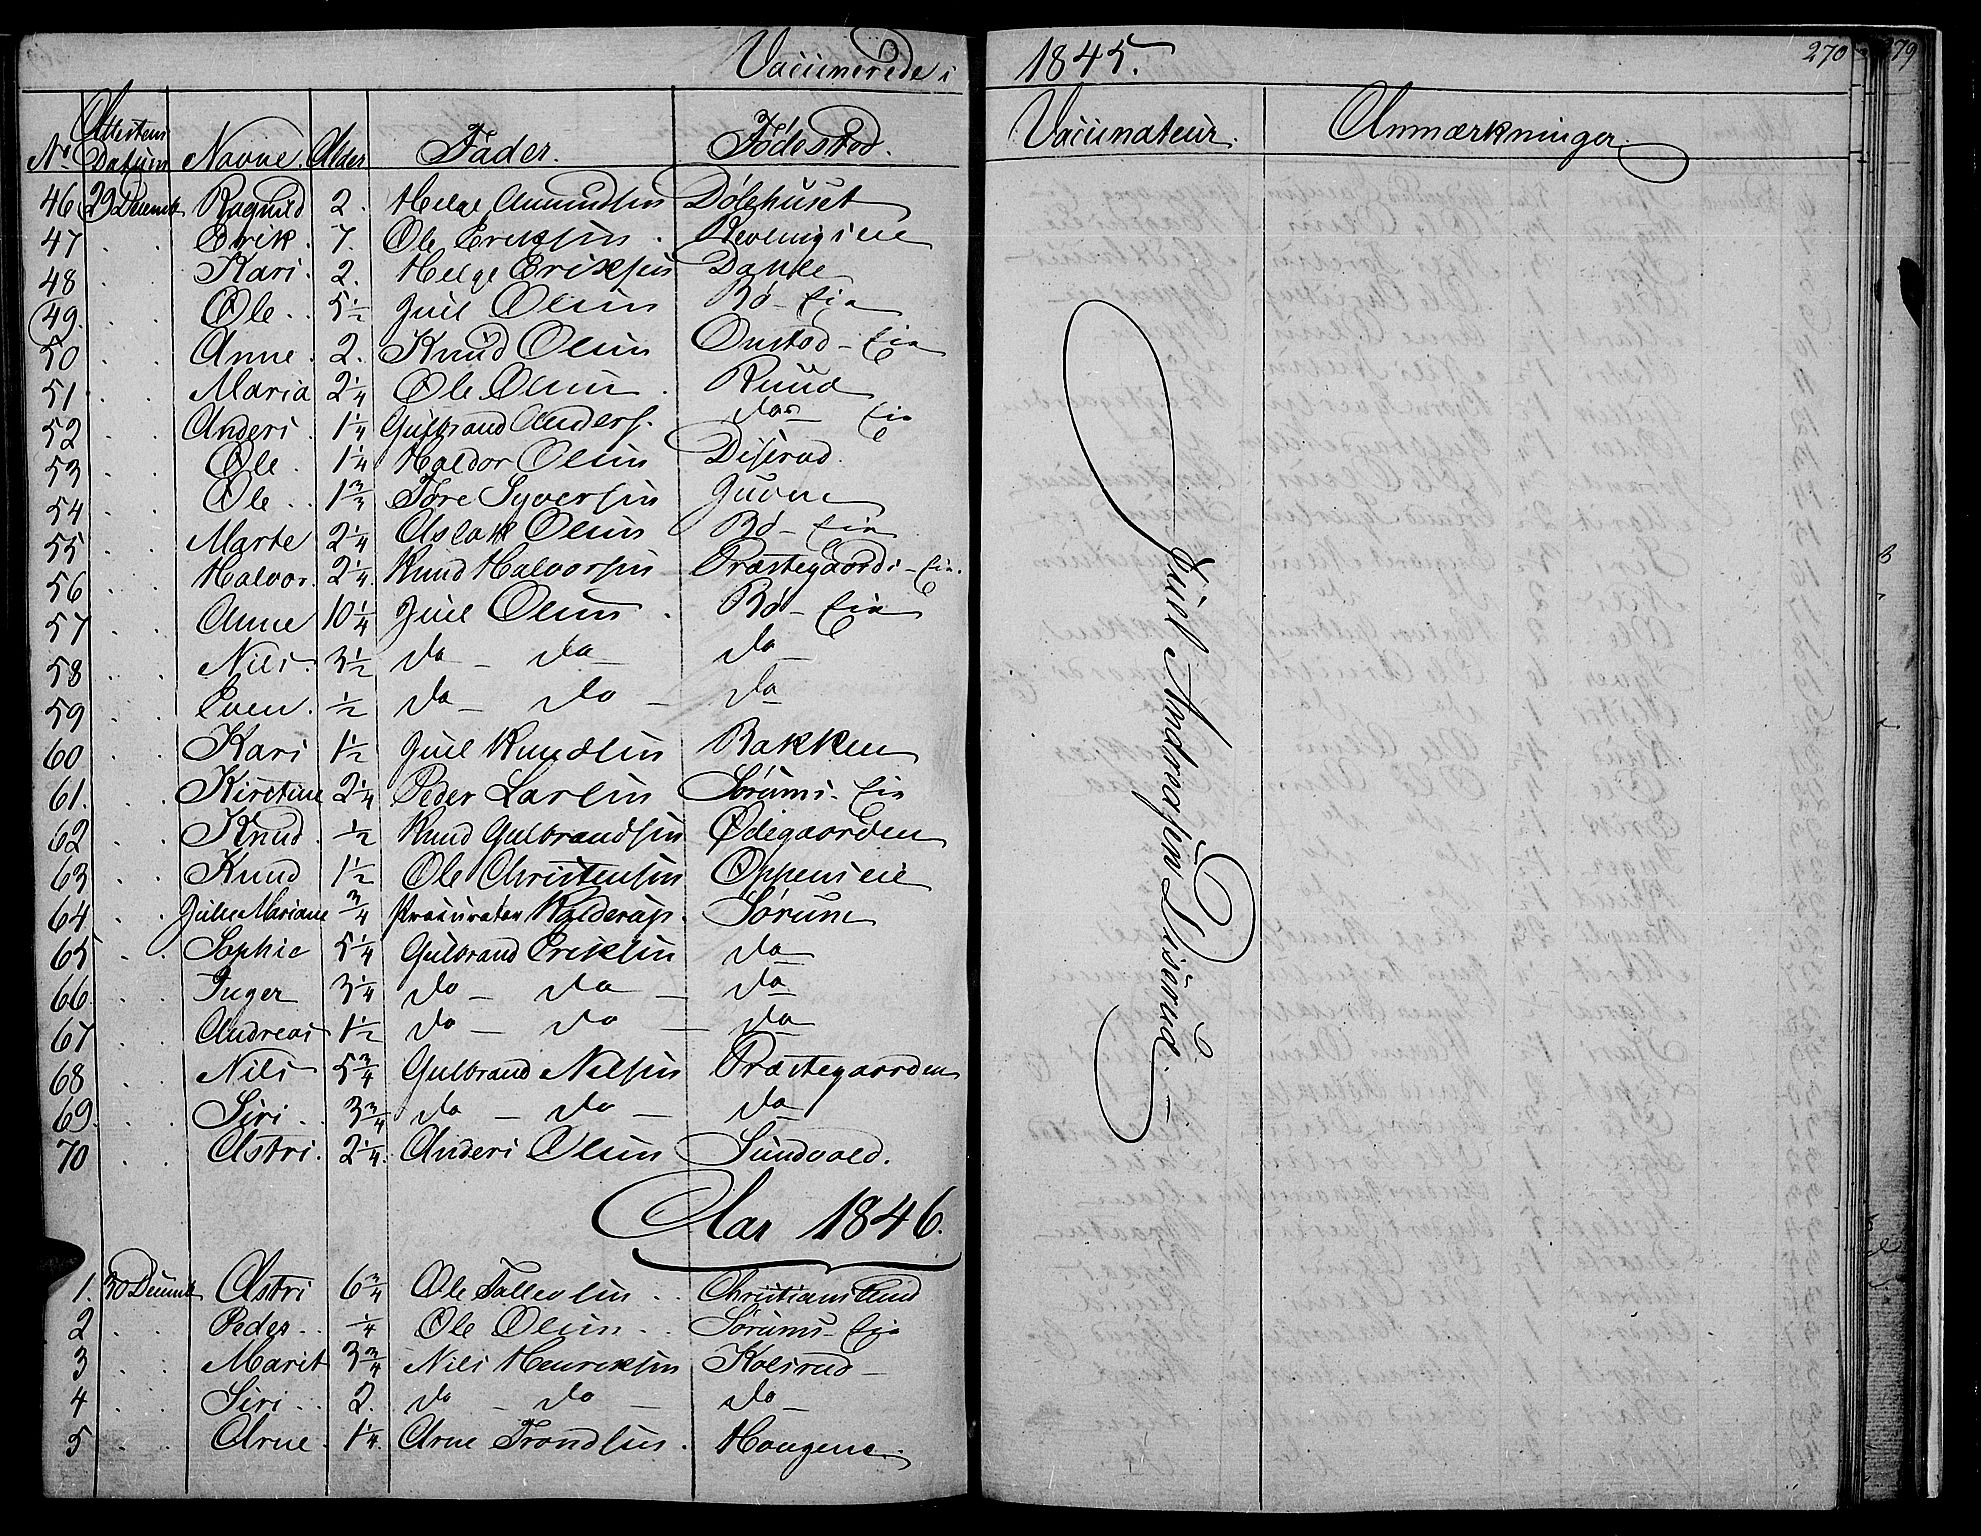 Vaccinerede i 1845.
270
279
No Attestens Datum Navne. Alder Fader. Fødested. Vaccinateur. Anmærkninger.
46 29 Decemb Ragnild 2. Helge Amundsen Dølehuset
47 . . Erik. 7. Ole Eriksen.
48 . . Kari. 2. Helge Eriksen Danke
49. . . Ole. . 5 1/2 Juel Olsen Bø-Eie
50 . . Anne. 2. Knud Olsen Onstad-Eie
51 . . Maria 2 1/4 Ole Olsen. Ruud
52 . . Anders. 1 1/4 Gulbrand Anders. do Eie
53 . . Ole. 1 1/4 Haldor Olsen Diserud.
54 . . Ole. . 1 Tore Syversen
55 . . Marte 2 1/4 Aslak Olsen Bø-Eie
56 . . Halvor. 2 1/4 Knud Halvorsen Præstegaards-Eie.
57 . . Anne 10 1/4 Juel Olsen. Bø-Eie
58 . . Nils. 3 1/2 do - do - do -
59 . . Even. 1/2 do - do - do -
60 . . Kari 1 1/2 Juel Knudsen Bakken
61. . . Kirstine 2 1/4 Peder Larsen Sørums-Eie
62 . . Knud. 1/2 Knud Gulbrandsen Ødegaarden
63 . . Knud 1 1/2 Ole Christensen Oppenseie
64 . . Julie Mariane 3/4 Procurator Sørum
65 . . Sophie 5 1/4 Gulbrand Eriksen do
66 . . Inger 3 1/4 do - do - do -
67 . . Andreas 1 1/2 do - do - do -
68 . . Nils 5 3/4 Gulbrand Nilsen Præstegaarden
69. . . Siri. 3 3/4 do - do - do -
70 . . Astri. 2 1/4. Anders Olsen Sundvold.
Juul Andersen Diserud.
Aar 1846.
1. 30 Decemb Astri 6 3/4 Ole Tollevsen. . Christianslund
2 . . Peder. . 1/4 Ole Olsen. . Sørums-Eie
3 . . Marit 3 3/4 Nils Henriksen Kolsrud
4 . . Siri. . 2. do - do - do -
5 . . Arne. 1 1/4. Arne Trondsen. Haugene.